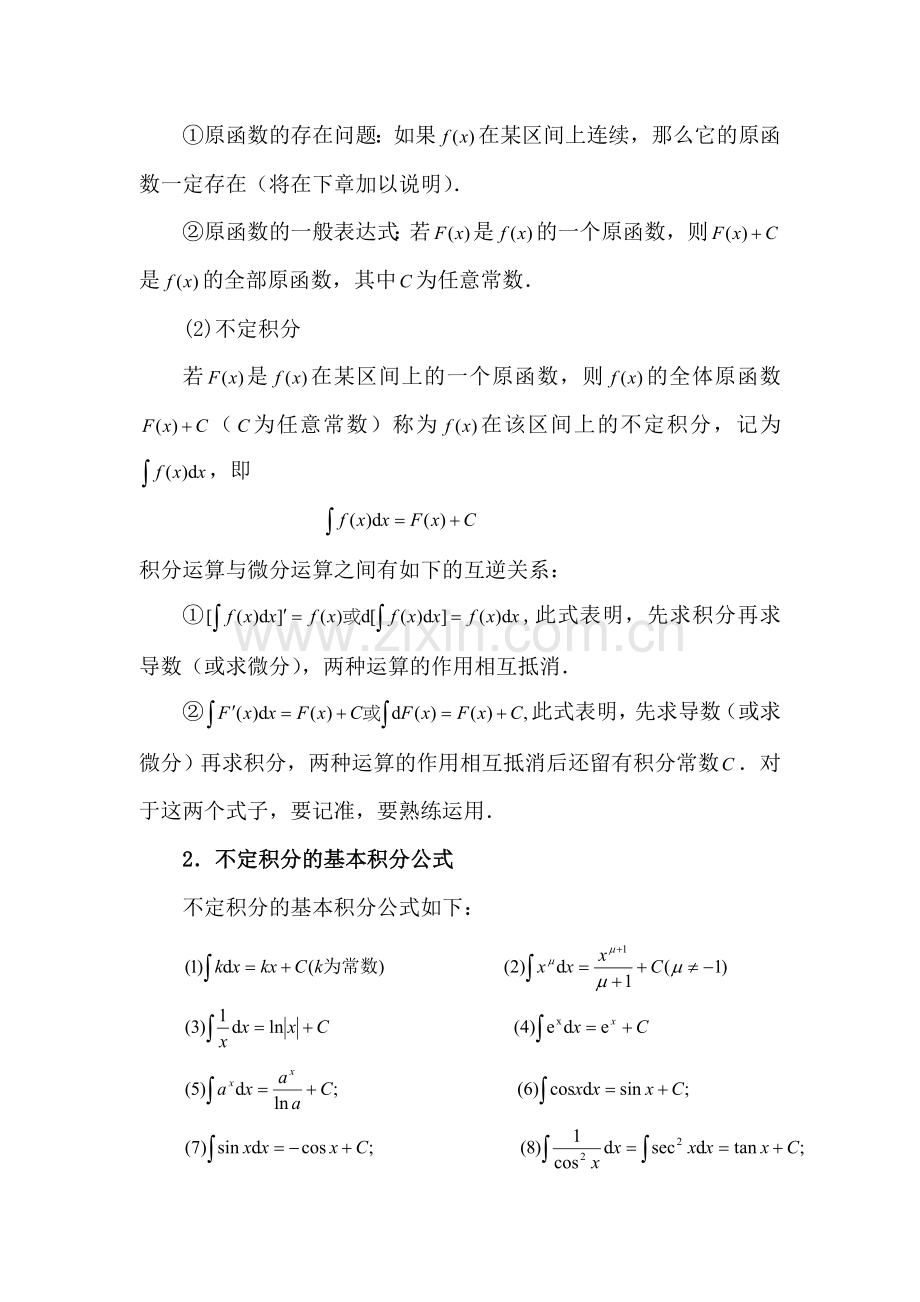 ①原函数的存在问题：如果 f(x) 在某区间上连续，那么它的原函
数一定存在（将在下章加以说明）．
②原函数的一般表达式：若 F(x) 是 f(x) 的一个原函数，则 F(x)+C
是 f(x) 的全部原函数，其中 C 为任意常数．
(2)不定积分
若 F(x) 是 f(x) 在某区间上的一个原函数，则 f(x) 的全体原函数
F(x)+C（C 为任意常数）称为 f(x) 在该区间上的不定积分，记为
∫f(x)dx，即
∫f(x)dx = F(x)+C
积分运算与微分运算之间有如下的互逆关系：
①[∫f(x)dx]′= f(x)或d[∫f(x)dx] = f(x)dx，此式表明，先求积分再求
导数（或求微分），两种运算的作用相互抵消．
②∫F′(x)dx = F(x)+C或∫dF(x) = F(x)+C, 此式表明，先求导数（或求
微分）再求积分，两种运算的作用相互抵消后还留有积分常数 C．对
于这两个式子，要记准，要熟练运用．
2．不定积分的基本积分公式
不定积分的基本积分公式如下：
(1)∫kdx = kx+C(k为常数) (2)∫x^μ dx = x^(μ+1)/(μ+1) + C(μ ≠ −1)
(3)∫1/x dx = ln|x|+C (4)∫e^x dx = e^x + C
(5)∫a^x dx = a^x/ln a + C; (6)∫cos xdx = sin x+C;
(7)∫sin xdx = −cos x+C; (8)∫1/cos² x dx = ∫sec² xdx = tan x+C;
www.zixin.com.cn